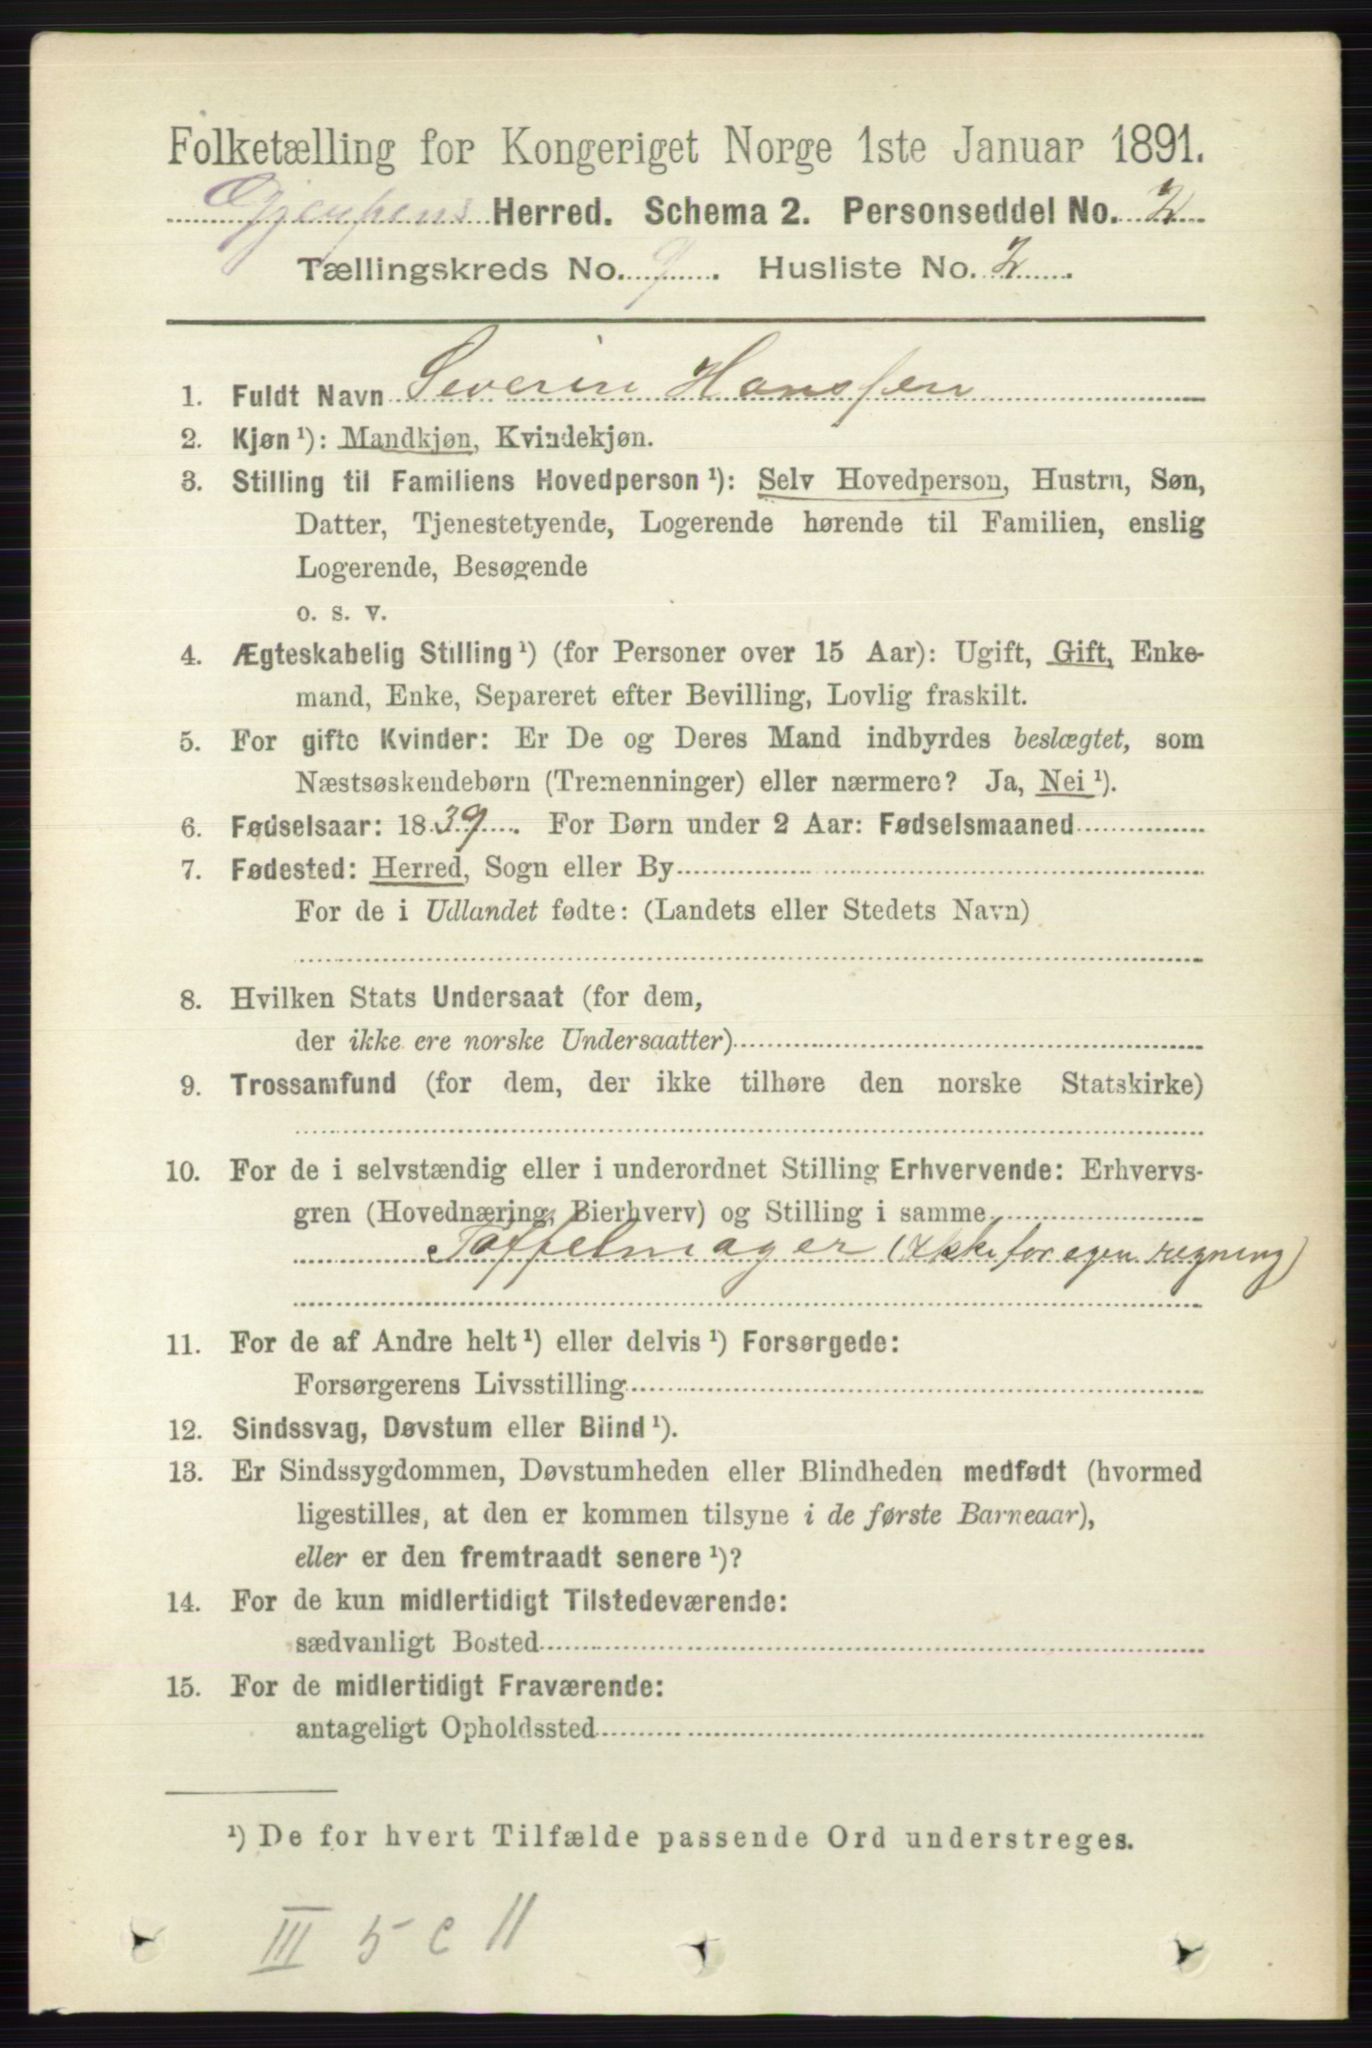 Folketælling for Kongeriget Norge 1ste Januar 1891.
Gjerpens Herred. Schema 2. Personseddel No. 2
Tællingskreds No. 9. Husliste No. 2.
1. Fuldt Navn Severin Hansen
2. Kjøn ¹): Mandkjøn, Kvindekjøn.
3. Stilling til Familiens Hovedperson ¹): Selv Hovedperson, Hustru, Søn,
Datter, Tjenestetyende, Logerende hørende til Familien, enslig
Logerende, Besøgende
o. s. v.
4. Ægteskabelig Stilling ¹) (for Personer over 15 Aar): Ugift, Gift, Enke-
mand, Enke, Separeret efter Bevilling, Lovlig fraskilt.
5. For gifte Kvinder: Er De og Deres Mand indbyrdes beslægtet, som
Næstsøskendebørn (Tremenninger) eller nærmere? Ja, Nei ¹).
6. Fødselsaar: 1839. For Børn under 2 Aar: Fødselsmaaned
7. Fødested: Herred, Sogn eller By
For de i Udlandet fødte: (Landets eller Stedets Navn)
8. Hvilken Stats Undersaat (for dem,
der ikke ere norske Undersaatter)
9. Trossamfund (for dem, der ikke tilhøre den norske Statskirke)
10. For de i selvstændig eller i underordnet Stilling Erhvervende: Erhvervs-
gren (Hovednæring, Bierhverv) og Stilling i samme
Tøffelmager (ikke for egen regning)
11. For de af Andre helt ¹) eller delvis ¹) Forsørgede:
Forsørgerens Livsstilling
12. Sindssvag, Døvstum eller Blind ¹).
13. Er Sindssygdommen, Døvstumheden eller Blindheden medfødt (hvormed
ligestilles, at den er kommen tilsyne i de første Barneaar),
eller er den fremtraadt senere ¹)?
14. For de kun midlertidigt Tilstedeværende:
sædvanligt Bosted
15. For de midlertidigt Fraværende:
antageligt Opholdssted
¹) De for hvert Tilfælde passende Ord understreges.
III 5 c 11